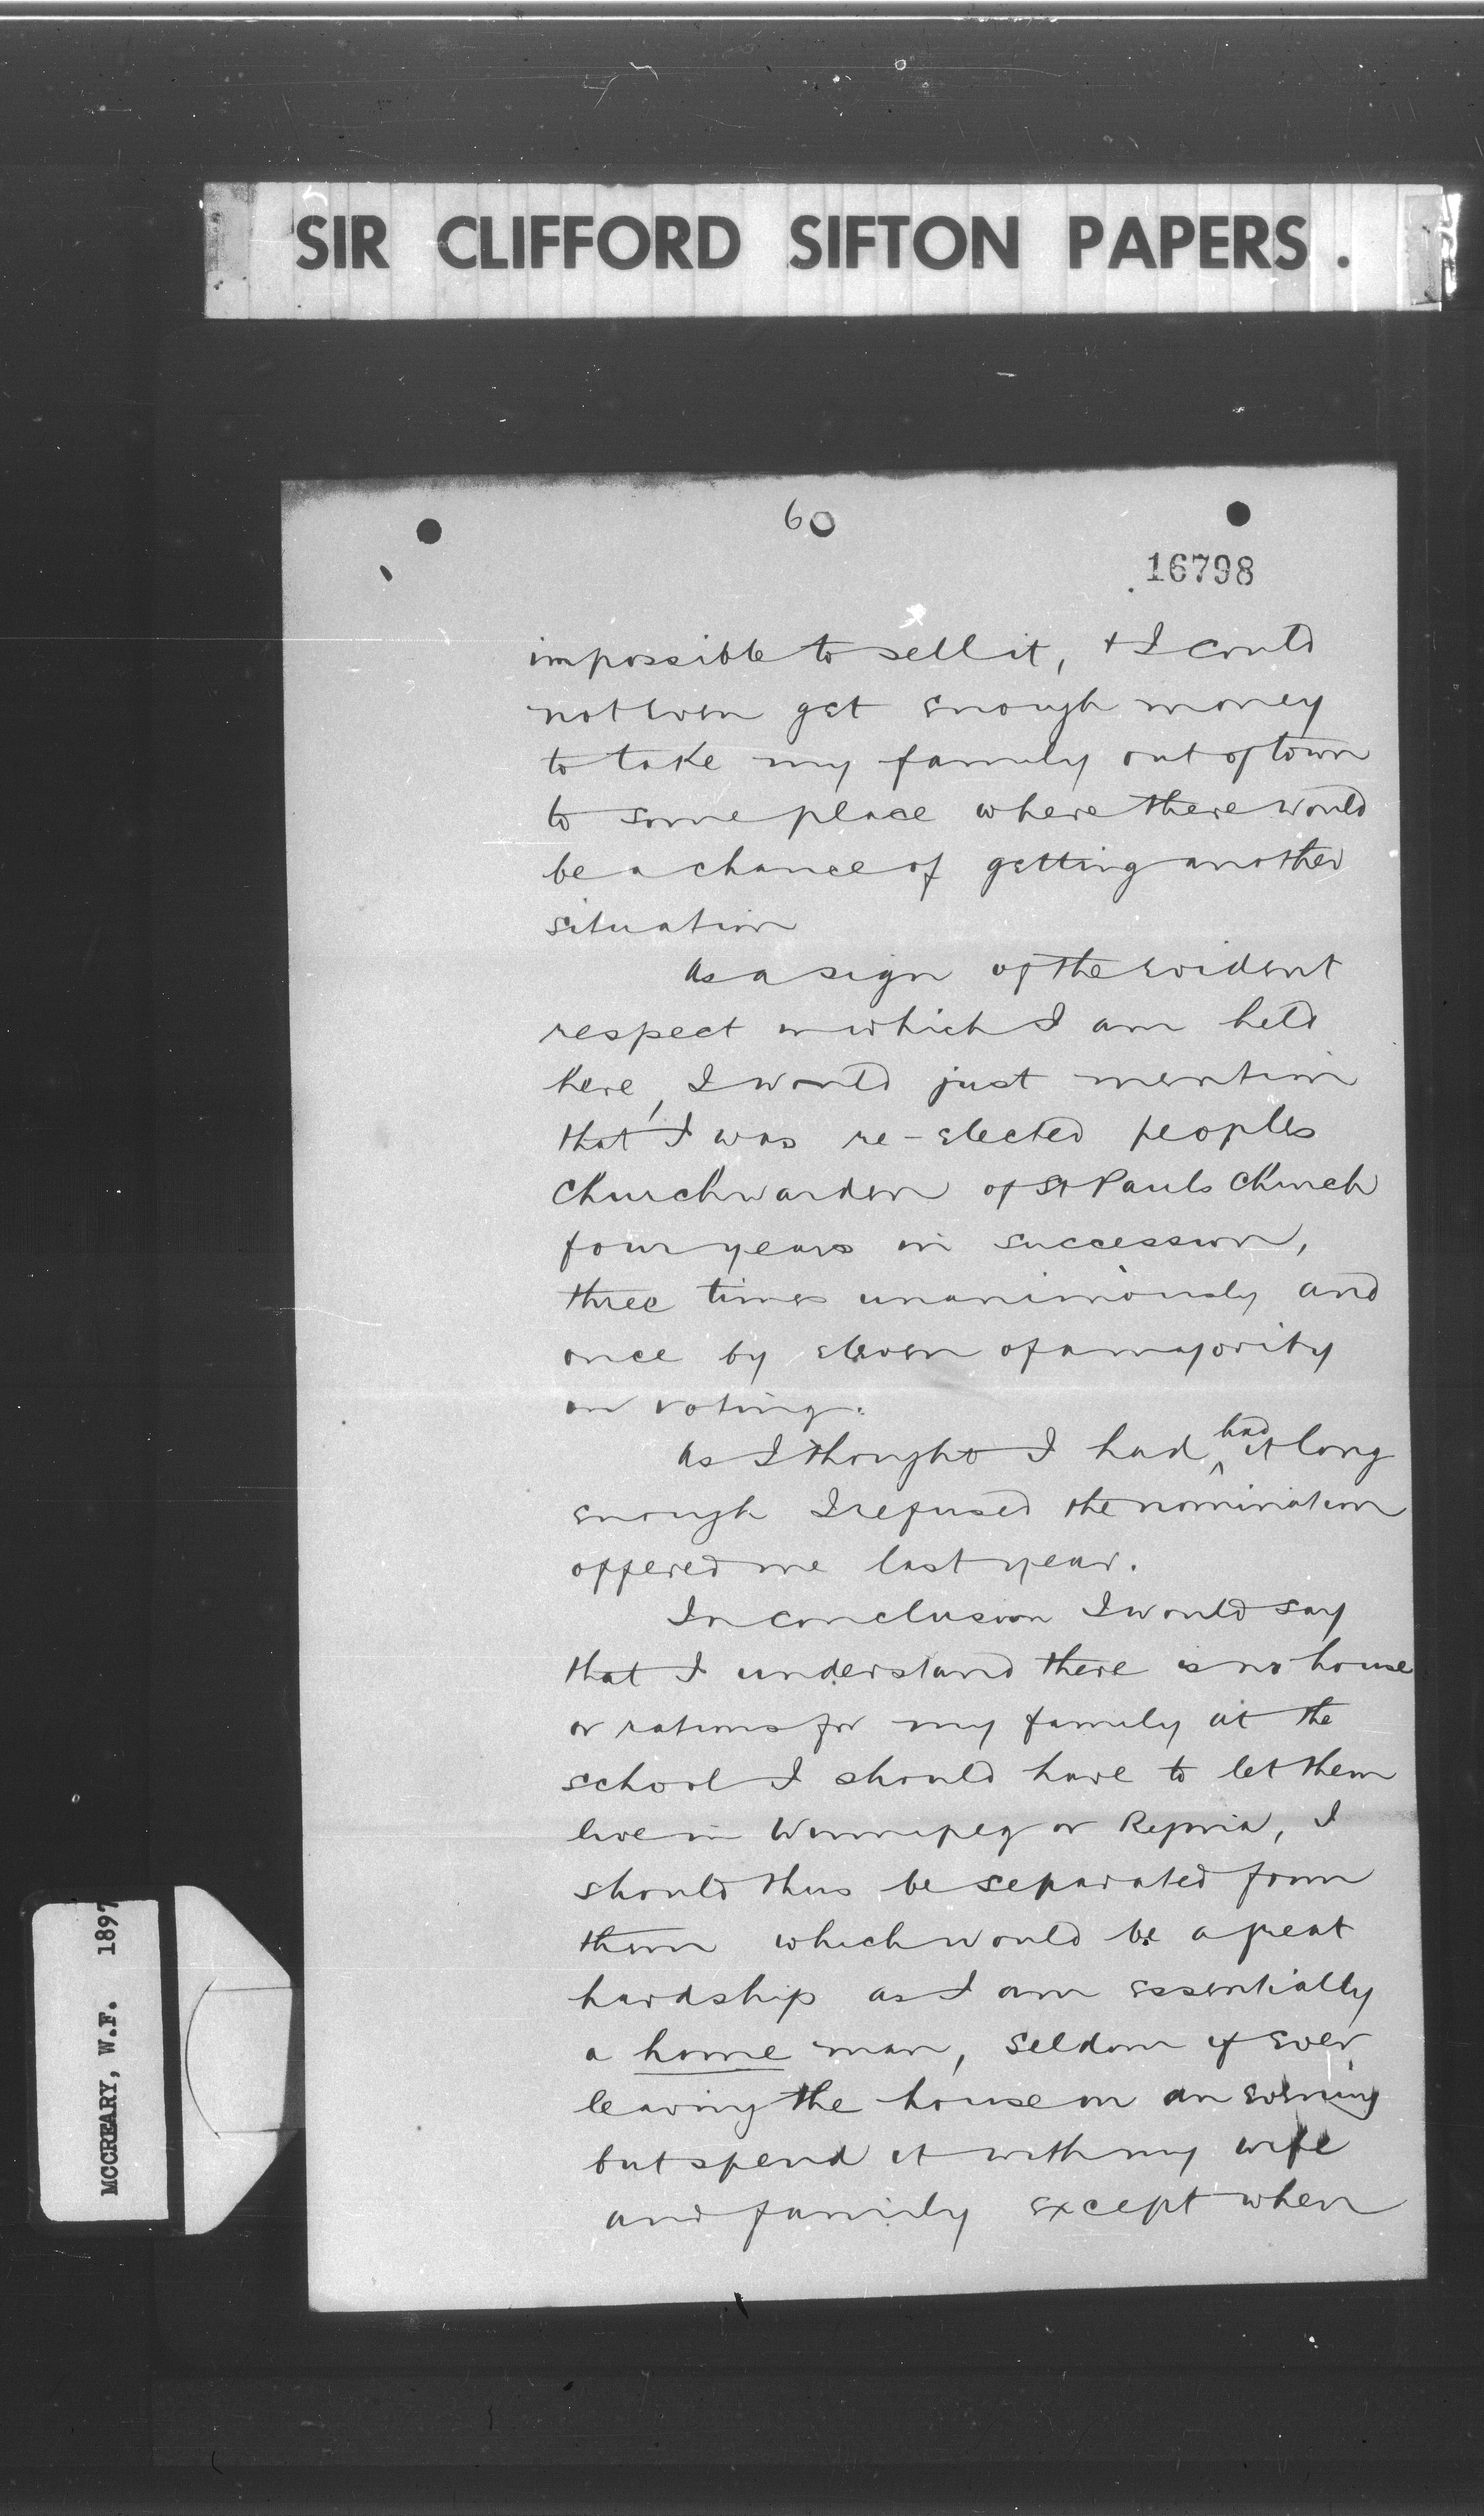 SIR CLIFFORD SIFTON PAPERS.
6
16798
impossible to sell it, + I could
not even get enough money
to take my family out of town
to some place where there would
be a chance of getting another
situation
As a sign of the evident
respect in which I am held
here, I would just mention
that I was re-elected peoples
Churchwarden of St Pauls Church
four years in succession,
three times unanimously and
once by eleven of a majority
on voting.
As I thought I had had it long
enough I refused the nomination
offered me last year.
In conclusion I would say
that I understand there is no house
or rations for my family at the
school I should have to let them
live in Winnipeg or Regina, I
should thus be separated from
them which would be a great
hardship as I am essentially
a home man, seldom if ever
leaving the house on an evening
but spend it with my wife
and family except when
MCCREARY, W.F. 1897